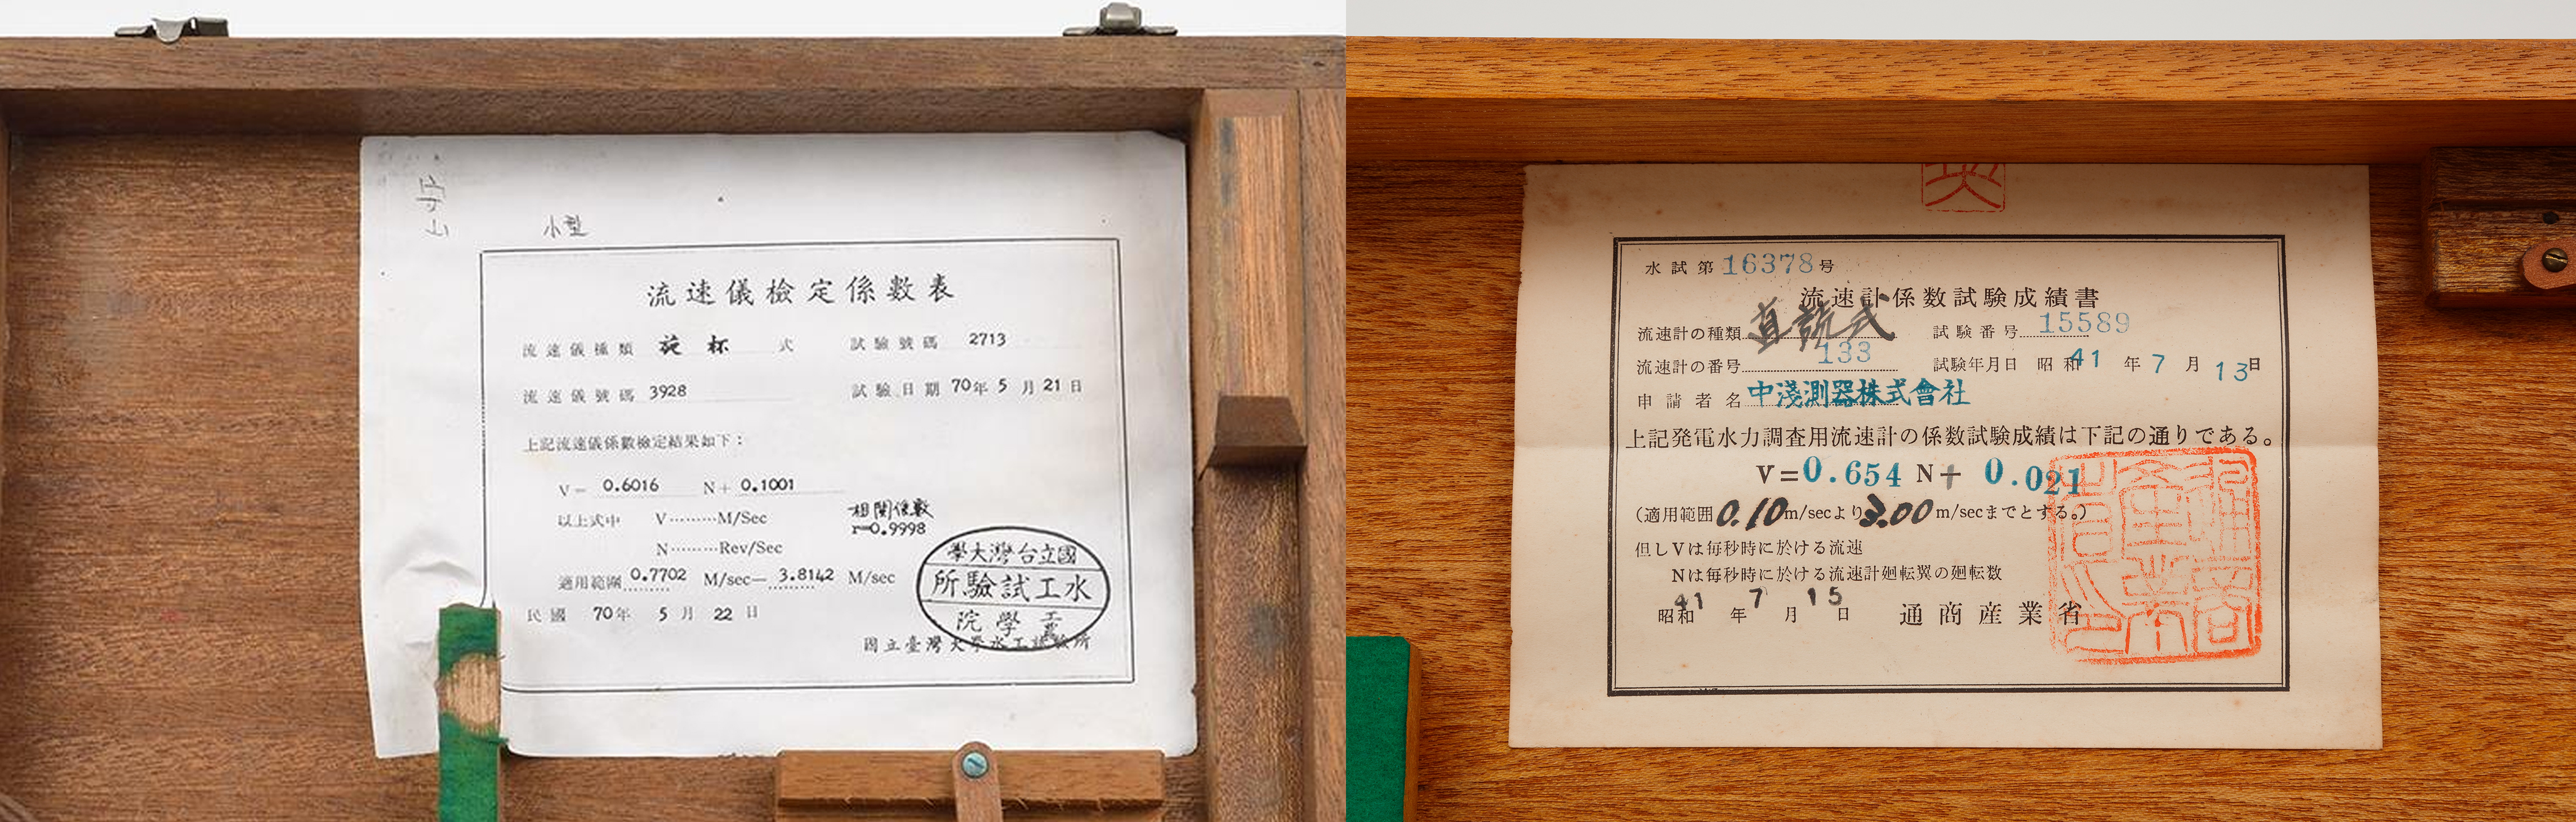 小型
流速儀檢定係數表
流速儀種類 旋杯 式 試驗號碼 2713
流速儀號碼 3928 試驗日期 70年 5 月 21 日
上記流速儀係數檢定結果如下：
V= 0.6016 N+ 0.1001
以上式中 V………M/Sec
相関係數
r=0.9998
N………Rev/Sec
適用範圍 0.7702 M/sec— 3.8142 M/sec
民國 70年 5 月 22 日
學大灣台立國
所驗試工水
院學工
國立臺灣大學水工試驗所
水試第16378号
流速計係数試験成績書
流速計の種類 直読式 試験番号 15589
流速計の番号 133 試験年月日 昭和41年7月13日
申請者名 中淺測器株式會社
上記発電水力調査用流速計の係数試験成績は下記の通りである。
V=0.654 N+ 0.021
(適用範囲0.10m/secより3.00m/secまでとする。)
但しVは毎秒時に於ける流速
Nは毎秒時に於ける流速計廻転翼の廻転数
昭和41年7月15日 通商産業省